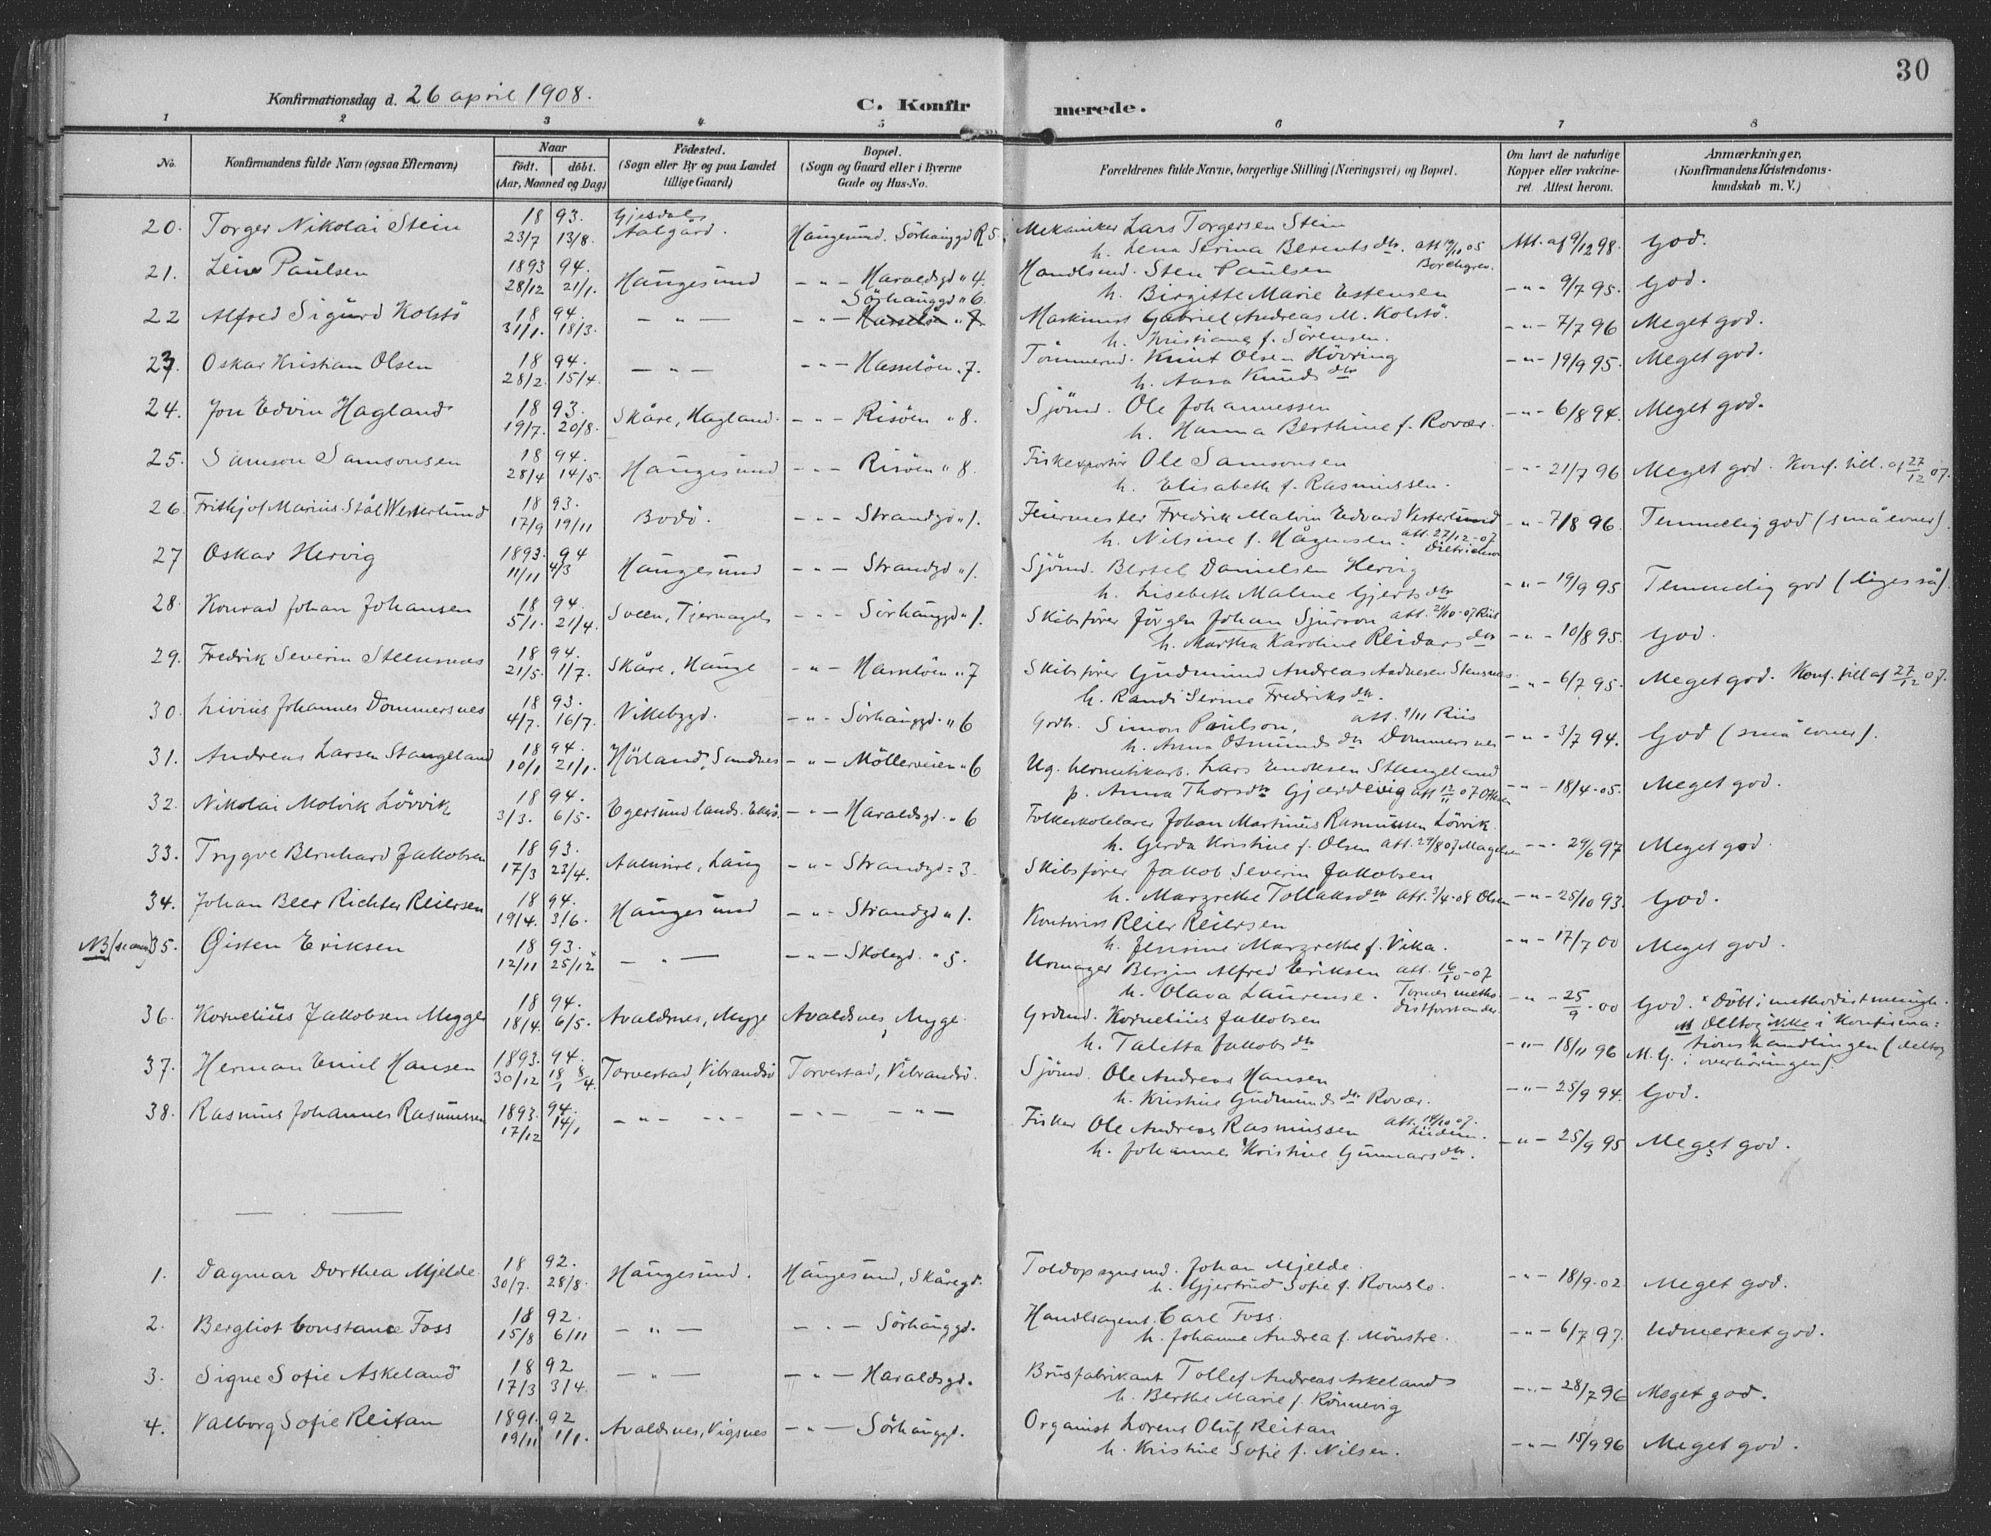 30
Konfirmationsdag d. 26 april 1908.
C. Konfirmerede.
1 2 3 4 5 6 7 8
No. Konfirmandens fulde Navn (ogsaa Efternavn) Naar født. døbt. (Aar, Maaned og Dag) Födested. (Sogn eller By og paa Landet tillige Gaard) Bopæl. (Sogn og Gaard eller i Byerne Gade og Hus-No. Forældrenes fulde Navne, borgerlige Stilling (Næringsvei) og Bopæl. Om havt de naturlige Kopper eller vakcineret. Attest herom. Anmærkninger. (Konfirmandens Kristendomskundskab m. V.)
20. Torger Nikolai Stein 18 93. 23/7 13/8. Gjesdal, Aalgård. Haugesund. Sörhauggd R 5. Mekaniker Lars Torgersen Stein
h. Lena Serina Berentsdtr. att 19/10 05 Att. af 9/12 98. God.
21. Paulsen 1893 94. 28/12 21/1. Haugesund — " — Haraldsgd " 4. Handlsmd. Sten Paulsen
h. Birgitte Marie Estensen — " — 9/7 95. God.
22 Alfred Sigurd Kolstö 18 94. 31/1. 18/3. — " — — " — Sörhauggd " 6. Hasselöen " 7 Maskinist Gabriel Andreas M. Kolstö.
h. Kristiane f. Sörensen. — " — 7/7 96 Meget god.
23. Oskar Kristian Olsen 18 94. 28/2. 15/4. — " — — " — Hasselöen " 7. Tömmermd. Knut Olsen Hövring
h. Aasa Knudsdtr — " — 19/9 95. Meget god.
24. Jon Edvin Hagland 18 93. 19/7. 20/8. Skåre, Hagland. — " — Risöen " 8. Sjömd. Ole Johannessen
h. Hanna Berthine f. Rovær. — " — 6/8 94. Meget god.
25. Samson Samsonsen 18 94. 28/4 14/5. Haugesund — " — Risöen " 8. Fiskexportör Ole Samsonsen
h. Elisabeth f. Rasmussen. — " — 21/7 96 Meget god. Konf. till. af 27/12 07.
26. Frithjof Marius Stål Westerlund 18 93. 17/9 19/11 Bodö. — " — Strandgd " 1. Feiermester Fredrik Malvin Edvard Westerlund
h. Nilsine f. Hågensen. att. 27/12-07 — " — 7/8 96. Temmelig god (små evner).
27 Oskar Hervig 1893. 94 11/11 4/3 Haugesund — " — Strandgd " 1. Sjömd. Bertel Danielsen Hervig
h. Lisebeth Maline Gjertsdtr — " — 19/9 95 Temmelig god (ligesså).
28. Konrad Johan Johansen 18 94. 5/1. 21/4. Sveen, Tjernagel — " — Sörhauggd " 1. Skibsförer Jörgen Johan Sjurson att. 21/10-07 Riis
h. Martha Karoline Reidarsdtr — " — 10/8 95. God.
29. Fredrik Severin Steensnæs 18 94. 21/5. 1/7. Skåre, Hauge — " — Hasselöen " 7 Skibsförer Gudmund Andreas Stensnæs
h. Randi Serine Fredriksdtr. — " — 6/7 95. Meget god. Konf. till af 27/12 07.
30. Livius Johannes Dommersnes 18 93. 4/7. 16/7. Vikebygd. — " — Sörhauggd " 6 Grdbr. Simon Paulson, att. 9/11 Riis
h. Anna Osmundsdtr Dommersnes — " — 3/7 94. God (små evner).
31. Andreas Larsen Stangeland 18 94. 10/1 21/1. Höiland, Sandnes — " — Möllerveien " 6 Ug. hermetikarb. Lars Eriksen Stangeland
p. Anna Thorsdtr Gjerdevig att 12/11 07 — " — 18/4-05. Meget god.
32. Nikolai Molvik Lövvik 18 94. 3/3. 6/5. Egersund lands. — " — Haraldsgd. " 6 Folkeskolelærer Johan Martinus Rasmussen Lövvik.
h. Gerda Kristine f. Olsen att. 29/8 07 — " — 29/6 97 Meget god.
33. Trygve Bernhard Jakobsen 18 93. 17/3 23/4. — " — Strandgd " 3. Skibsförer Jakob Severin Jakobsen
h. Margrethe Tollaksdtr att. 3/4-08 Olsen — " — 25/10 93. God.
34. Johan Beer Richter Reiersen 18 94. 19/4. 3/6. Haugesund — " — Strandgd " 1. Kontorist Reier Reiersen
h. Jensine Margrethe f. Vika. — " — 17/7 00 Meget god.
NB (se anm) 35. Øisten Eriksen 18 93. 12/11 25/12 — " — — " — Skolegd. " 5. Urmager Bersin Alfred Eriksen att. 16/10-07
h. Olava Laurense. — " — 25/9.00 God. x Döbt i methodistmenigh.
NB Deltog ikke i Konfirmationshandlingen (deltog i overhöringen).
36. Kornelius Jakobsen Mygge 18 94. 18/4. 6/5. Avaldsnes, Mygge Avaldsnes, Mygge Grdmd. Kornelius Jakobsen
h. Taletta Jakobsdtr — " — 18/11 96 M. G.
37. Herman Emil Hansen 1893. 94. 30/12 18/1 8/4. Torvestad, Vibrandsö Torvestad, Vibrandsö. Sjömd. Ole Andreas Hansen
h. Kristine Gudmundsdtr Rovær. — " — 25/9 94. God.
38. Rasmus Johannes Rasmussen 1893. 94. 17/12 14/1 — " — — " — Fisker Ole Andreas Rasmussen att. 18/10 07.
h. Johannes Kristine Gunnarsdtr. — " — 25/9 95 Meget god.
1. Dagmar Dorthea Mjelde 18 92. 30/7. 28/8. Haugesund. Haugesund, Skåregd. Toldopsynsmd. Johan Mjelde.
h. Gjertrud Sofie f. Romslo. — " — 18/9.02 Meget god.
2. Bergliot Constance Foss 18 92. 15/8 6/11 — " — — " — Sörhauggd. Handlsagent Carl Foss.
h. Johanne Andrea f. Mönstre. — " — 6/7 97. Udmerket god.
3. Signe Sofie Askeland 18 92 17/3 3/4. — " — — " — Haraldsgd. Brusfabrikant Tollef Andreas Askeland
h. Berthe Marie f. Rönnevig — " — 28/7 96 Meget god.
4. Valborg Sofie Reitan 1891. 92 19/11 1/1. Avaldsnes, Vigsnes — " — Sörhauggd. Organist Lorens Oluf Reitan
h. Kristine Sofie f. Nilsen. — " — 15/9 96 Meget god.